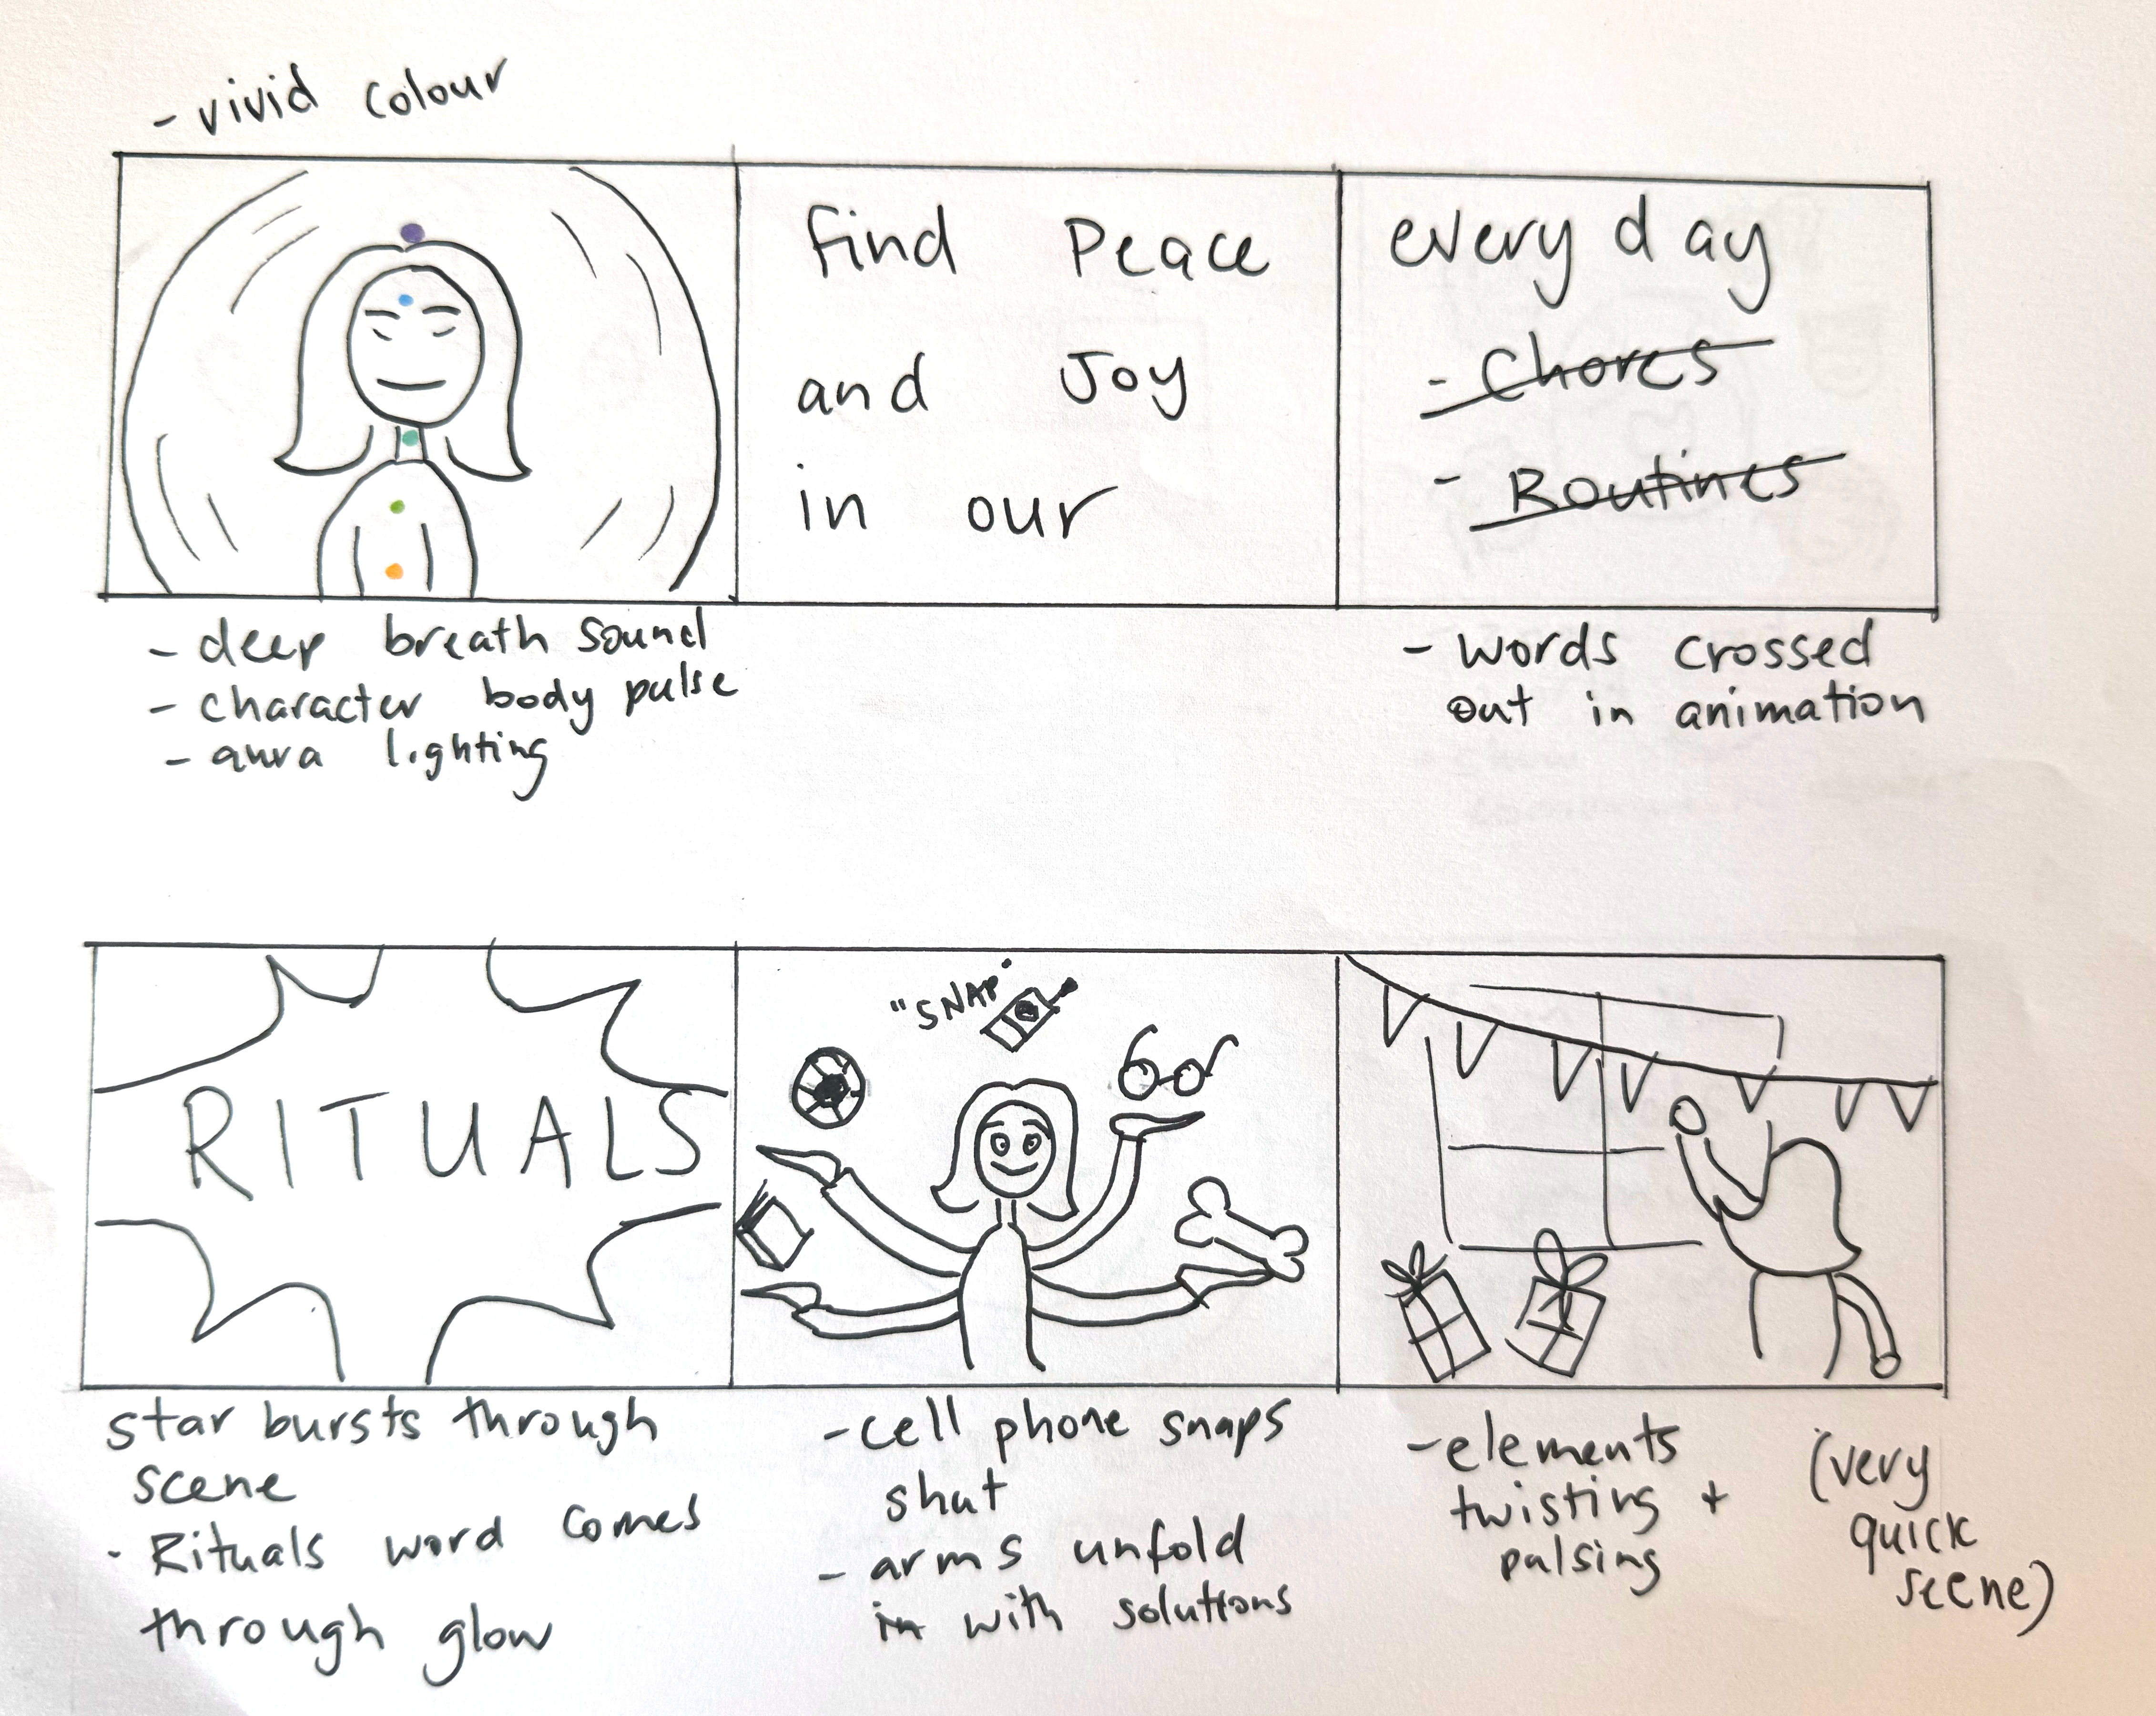 - vivid colour
find Peace
and Joy
in our
every day
- Chores
- Routines
- deep breath sound
- character body pulse
- aura lighting
- words crossed
out in animation
RITUALS
"SNAP"
star bursts through
scene
- Rituals word comes
through glow
- cell phone snaps
shut
- arms unfold
in with solutions
- elements
twisting +
pulsing
(very
quick
scene)